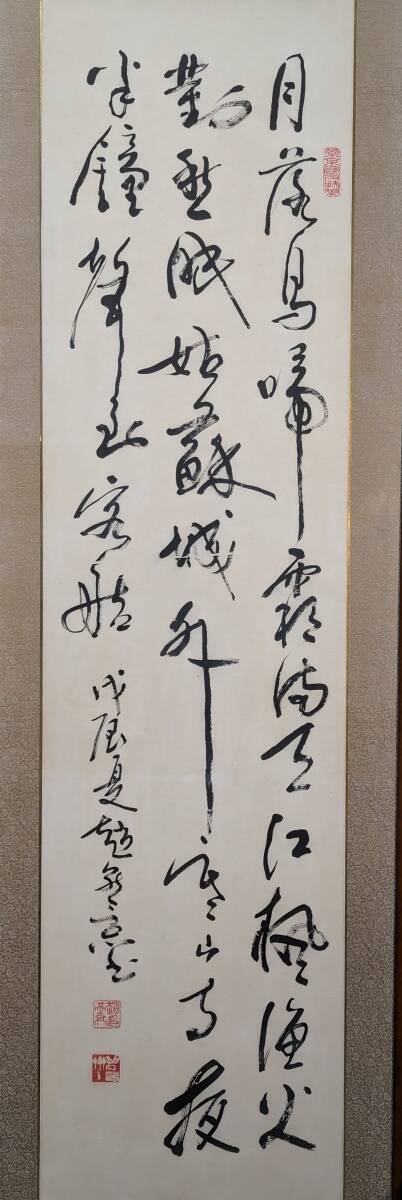 月落烏啼霜滿天江楓漁火
對愁眠姑蘇城外寒山寺夜
半鐘聲到客船
戊辰夏趙